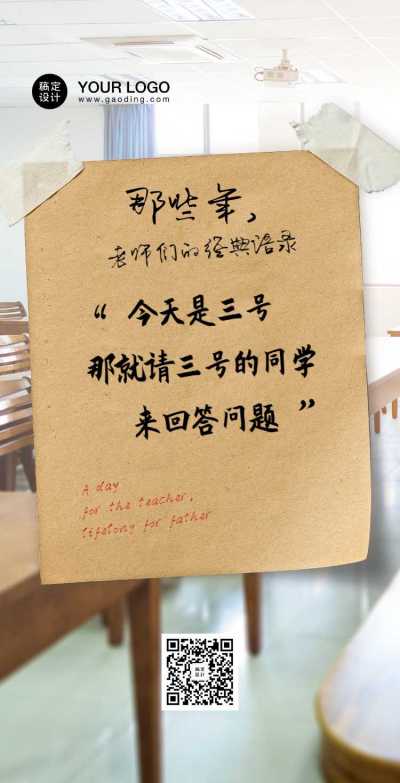 稿定
设计
YOUR LOGO
www.gaoding.com
那些年，
老师们的经典语录
“ 今天是三号
那就请三号的同学
来回答问题 ”
A day
for the teacher,
lifelong for father
稿定
设计